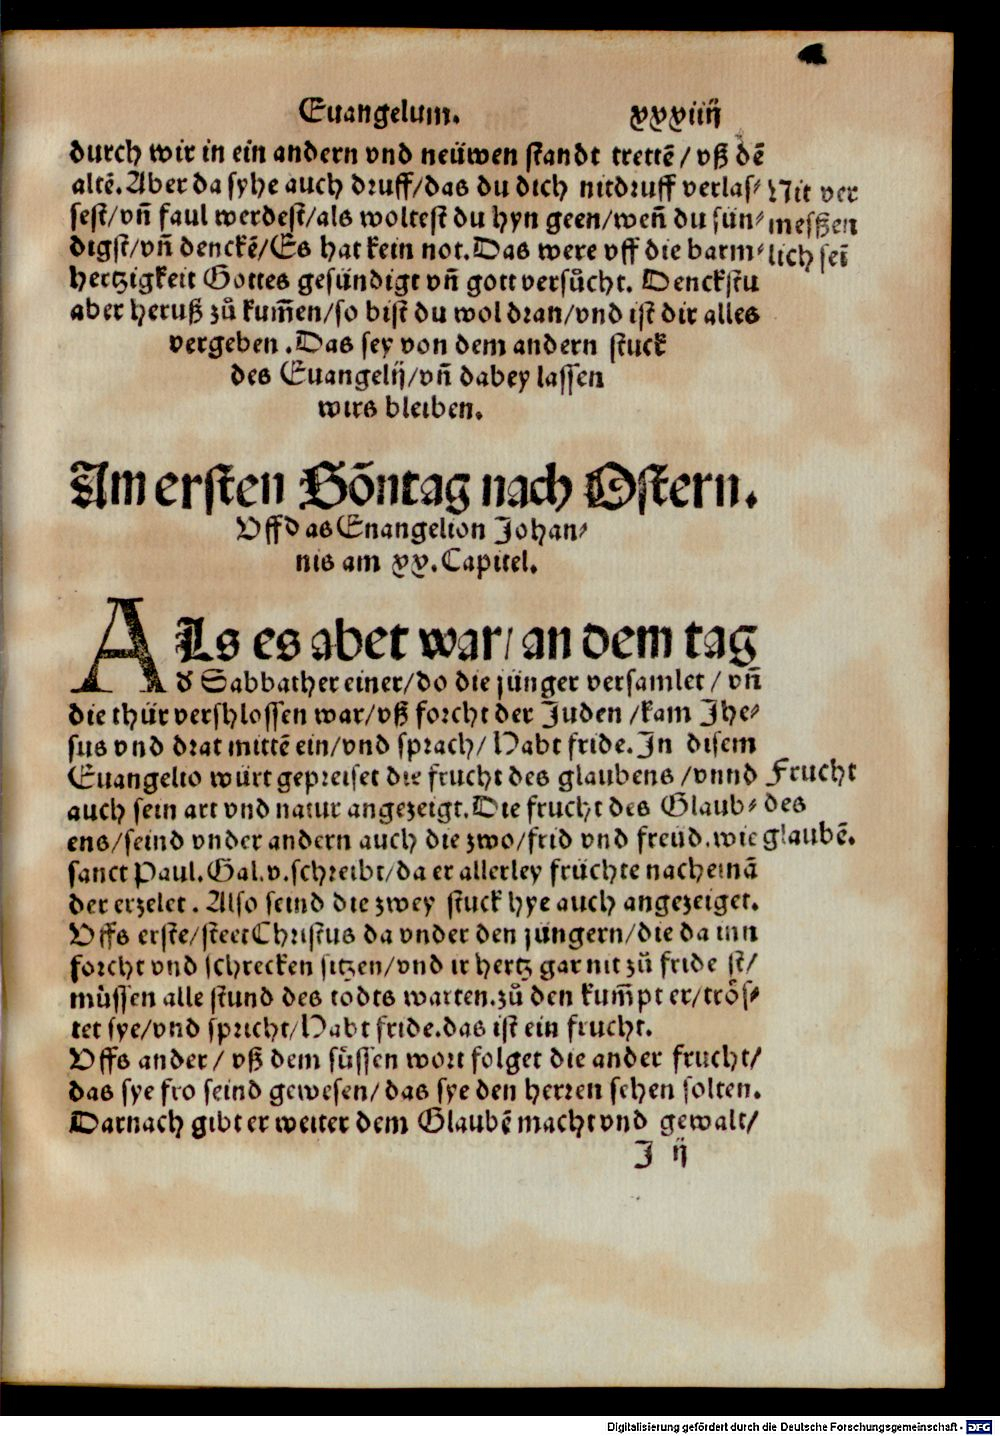 Euangelum. xxxiiij
durch wir in ein andern vnd neüwen standt trettē / vß dē
altē. Aber da syhe auch druff/das du dich nitdruff verlas⸗
sest/vñ faul werdest/als woltest du hyn geen/weñ du sün⸗
digst/vñ denckē/Es hat kein not. Das were vff die barm⸗
hertzigkeit Gottes gesündigt vñ gott versůcht. Denckstu
aber heruß zů kum̄en/so bist du wol dran/vnd ist dir alles
vergeben .Das sey von dem andern stuck
des Euangelij/vñ dabey lassen
wirs bleiben.
Nit ver
messzen
lich sei̅
Am ersten Sōntag nach Ostern.
Vff das Enangelion Johan⸗
nis am xx. Capitel.
ALs es abet war/ an dem tag
d Sabbather einer/do die jünger versamlet / vñ
die thür vershlossen war/vß forcht der Juden /kam Jhe⸗
sus vnd drat mittē ein/vnd sprach/ Habt fride. In disem
Euangelio würt gepreiset die frucht des glaubens /vnnd
auch sein art vnd natur angezeigt. Die frucht des Glaub⸗
ens/seind vnder andern auch die zwo/frid vnd freüd. wie
sanct Paul. Gal. v. schreibt/da er allerley früchte nacheinā
der erzelet . Also seind die zwey stuck hye auch angezeiget.
Vffs erste/steet Christus da vnder den jüngern/die da inn
forcht vnd schrecken sitzen/vnd ir hertz gar nit zů fride st/
müssen alle stund des todts warten. zů den kum̄pt er/trös⸗
tet sye/vnd spricht/ Habt fride. das ist ein frucht.
Vffs ander / vß dem süssen wort folget die ander frucht/
das sye fro seind gewesen/ das sye den herren sehen solten.
Darnach gibt er weiter dem Glaubē macht vnd gewalt/
Frucht
des
glaubē.
J ij
Digitalisierung gefördert durch die Deutsche Forschungsgemeinschaft - DFG